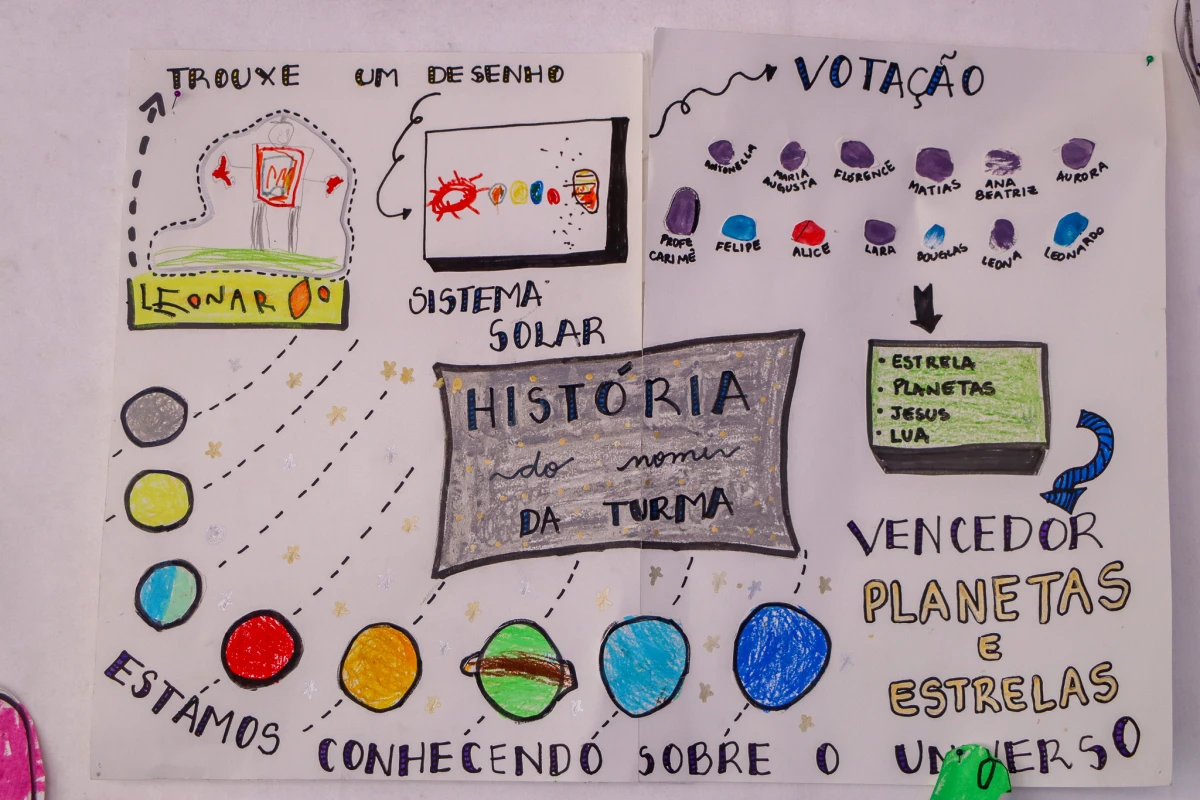 TROUXE UM DESENHO
LEONARDO
SISTEMA
SOLAR
VOTAÇÃO
ANTONELLA
MARIA
AUGUSTA
FLORENCE
MATIAS
ANA
BEATRIZ
AURORA
PROFE
CARIME
FELIPE
ALICE
LARA
DOUGLAS
LEONA
LEONARDO
• ESTRELA
• PLANETAS
• JESUS
• LUA
HISTÓRIA
do nome
DA TURMA
VENCEDOR
PLANETAS
E
ESTRELAS
ESTAMOS CONHECENDO SOBRE O UNIVERSO